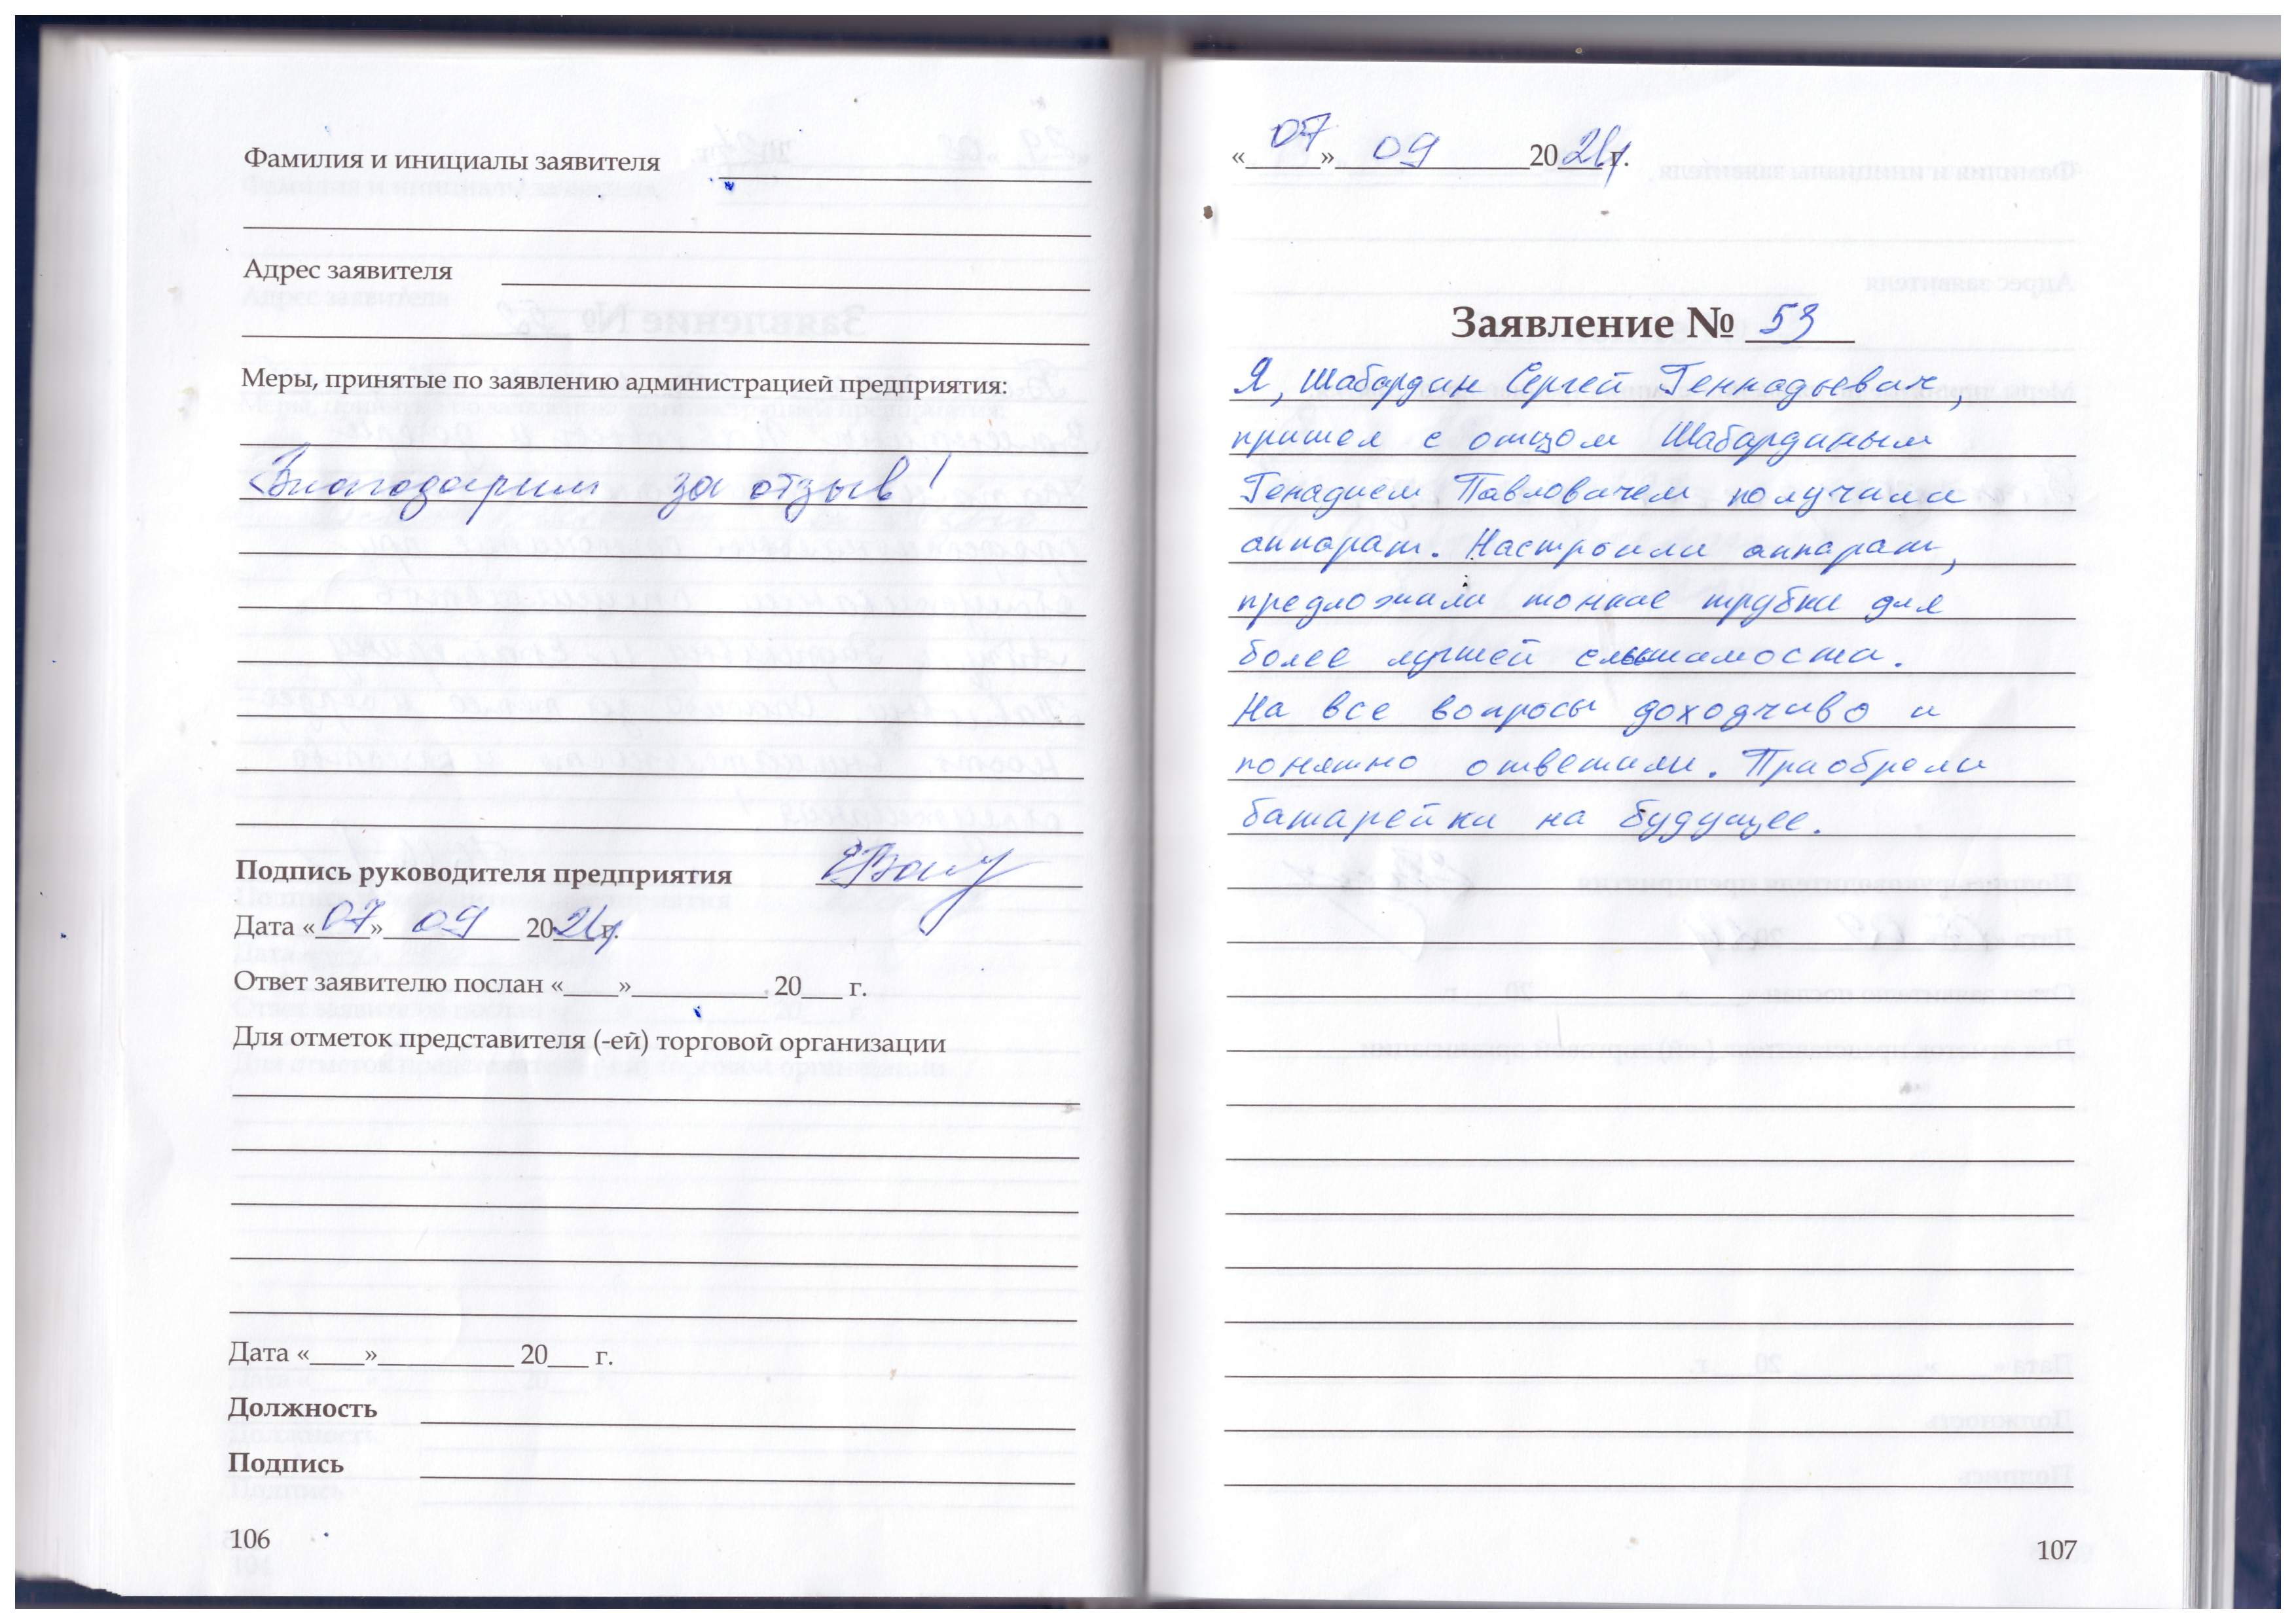 Фамилия и инициалы заявителя
Адрес заявителя
Меры, принятые по заявлению администрацией предприятия:
Благодарим за отзыв!
Подпись руководителя предприятия
Дата «07» 09 2024 г.
Ответ заявителю послан «____»__________ 20___ г.
Для отметок представителя (-ей) торговой организации
Дата «____»__________ 20___ г.
Должность
Подпись
106
«07» 09 2024 г.
Заявление № 53
Я, Шабардин Сергей Геннадьевич,
пришел с отцом Шабардиным
Генадием Павловичем получили
аппарат. Настроили аппарат,
предложили тонкие трубки для
более лучшей слышимости.
На все вопросы доходчиво и
понятно ответили. Приобрели
батарейки на будущее.
107